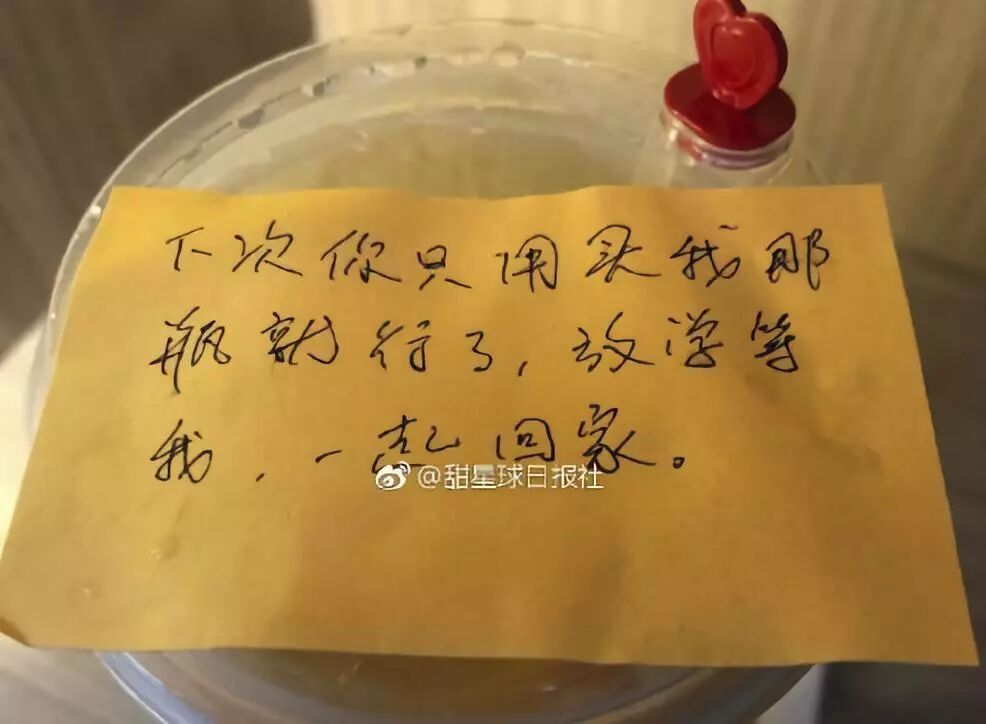 下次你只用买我那
瓶就行了,放学等
我,一起回家。
@甜星球日报社